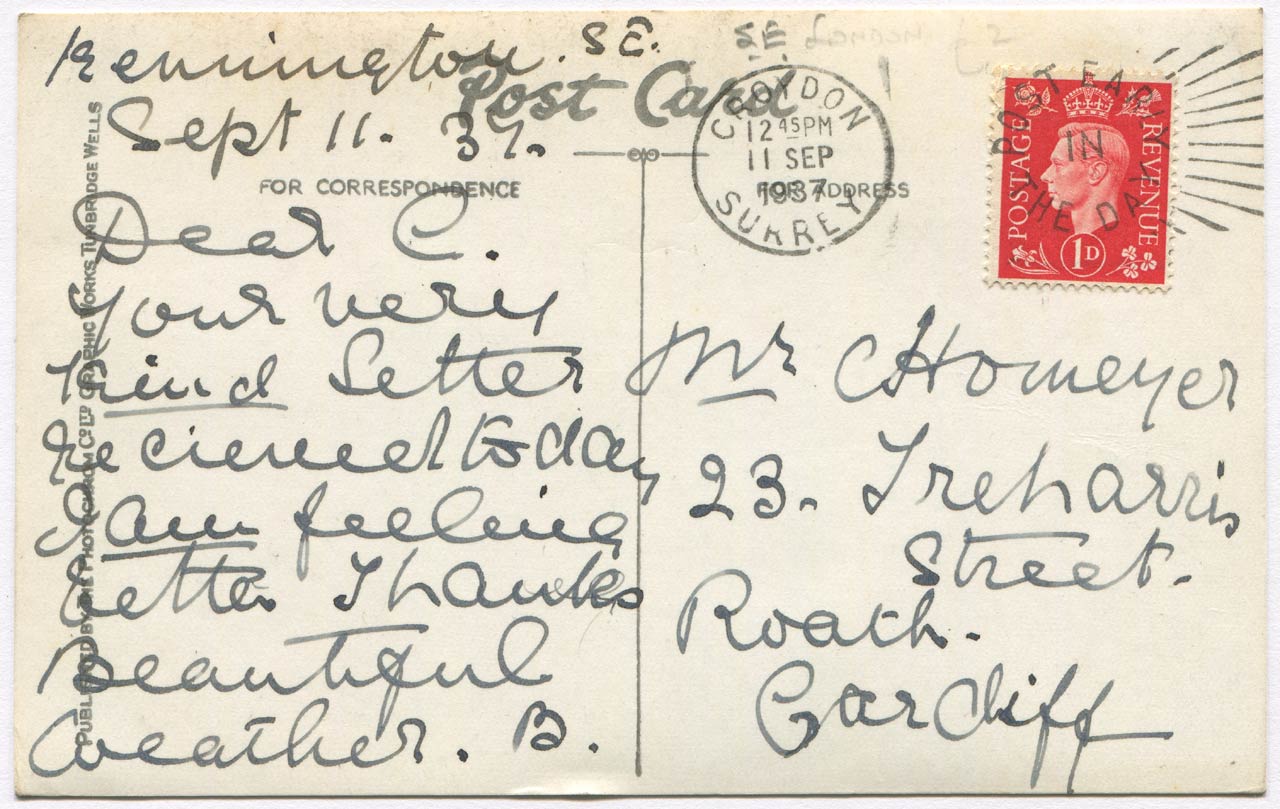 Kennington. S.E.
Sept 11. 37.
Post Card
FOR CORRESPONDENCE
FOR ADDRESS
Dear C.
Your very
kind letter
recieved today
I am feeling
better Thanks
Beautiful
weather. B.
PUBLISHED BY THE PHOTOCHROM CO LTD GRAPHIC WORKS TUNBRIDGE WELLS
S.E. London £2
CROYDON
12 45 PM
11 SEP
1937
SURREY
POST EARLY
IN
THE DAY
POSTAGE
REVENUE
1D
Mr C Homeyer
23. Treharris
Street.
Roath.
Cardiff